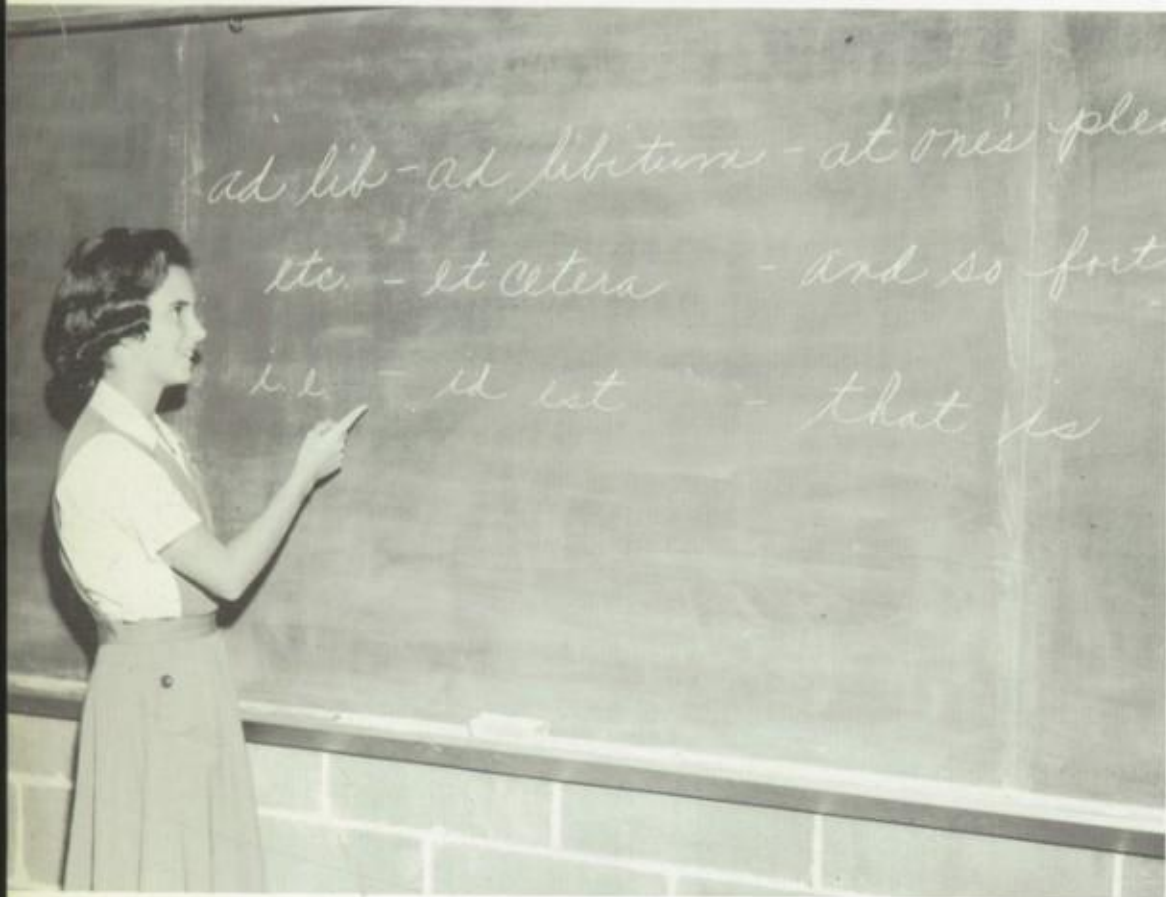 ad lib - ad libitum - at one's ple
etc. - et cetera - and so fort
i.e. - id est - that is